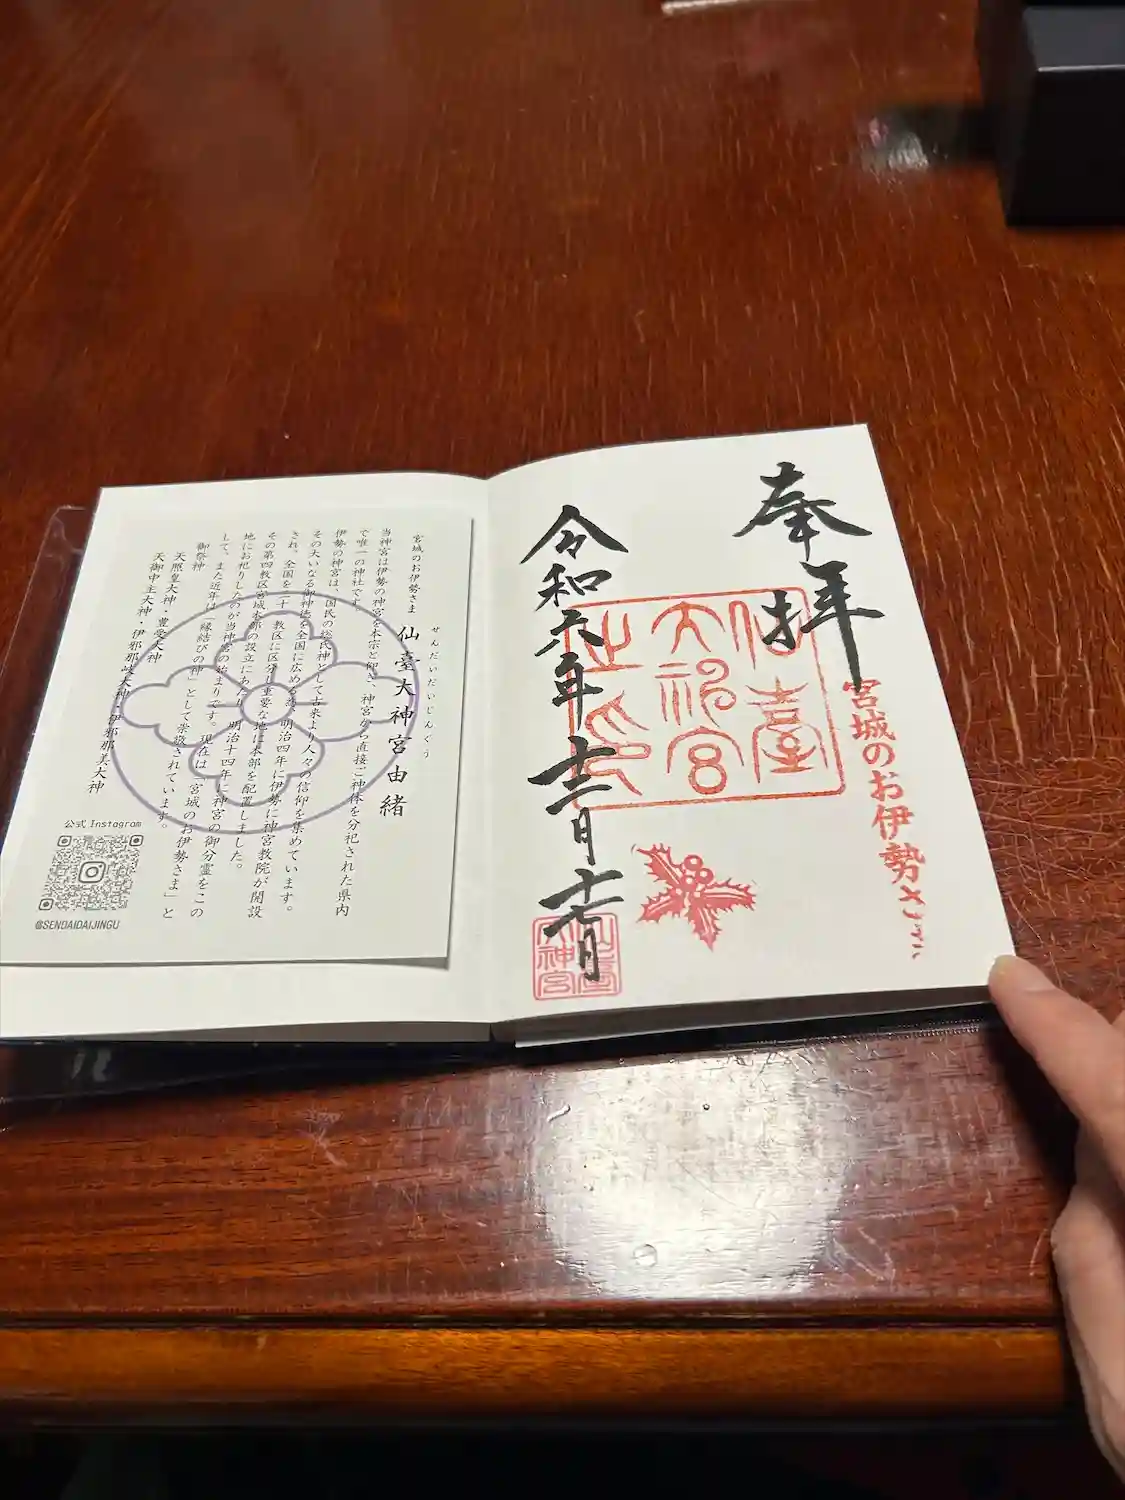 奉拝
宮城のお伊勢さま
仙臺
大神宮
之印
令和六年十二月十七日
仙臺
大神宮
宮城のお伊勢さま
せんだいだいじんぐう
仙臺大神宮由緒
当神宮は伊勢の神宮を本宗と仰ぎ、神宮から直接ご神体を分祀された県内
で唯一の神社です。
伊勢の神宮は、国民の総氏神として古来より人々の信仰を集めています。
その大いなる御神徳を全国に広める為、明治四年に伊勢に神宮教院が開設
され。全国を二十一教区に区分し重要な地に本部を配置しました。
その第四教区宮城本部の設立にあたり、明治十四年に神宮の御分霊をこの
地にお祀りしたのが当神宮の始まりです。現在は「宮城のお伊勢さま」と
して、また近年は「縁結びの神」として崇敬されています。
御祭神
天照皇大神・豊受大神
天御中主大神・伊邪那岐大神・伊邪那美大神
公式 Instagram
@SENDAIDAIJINGU